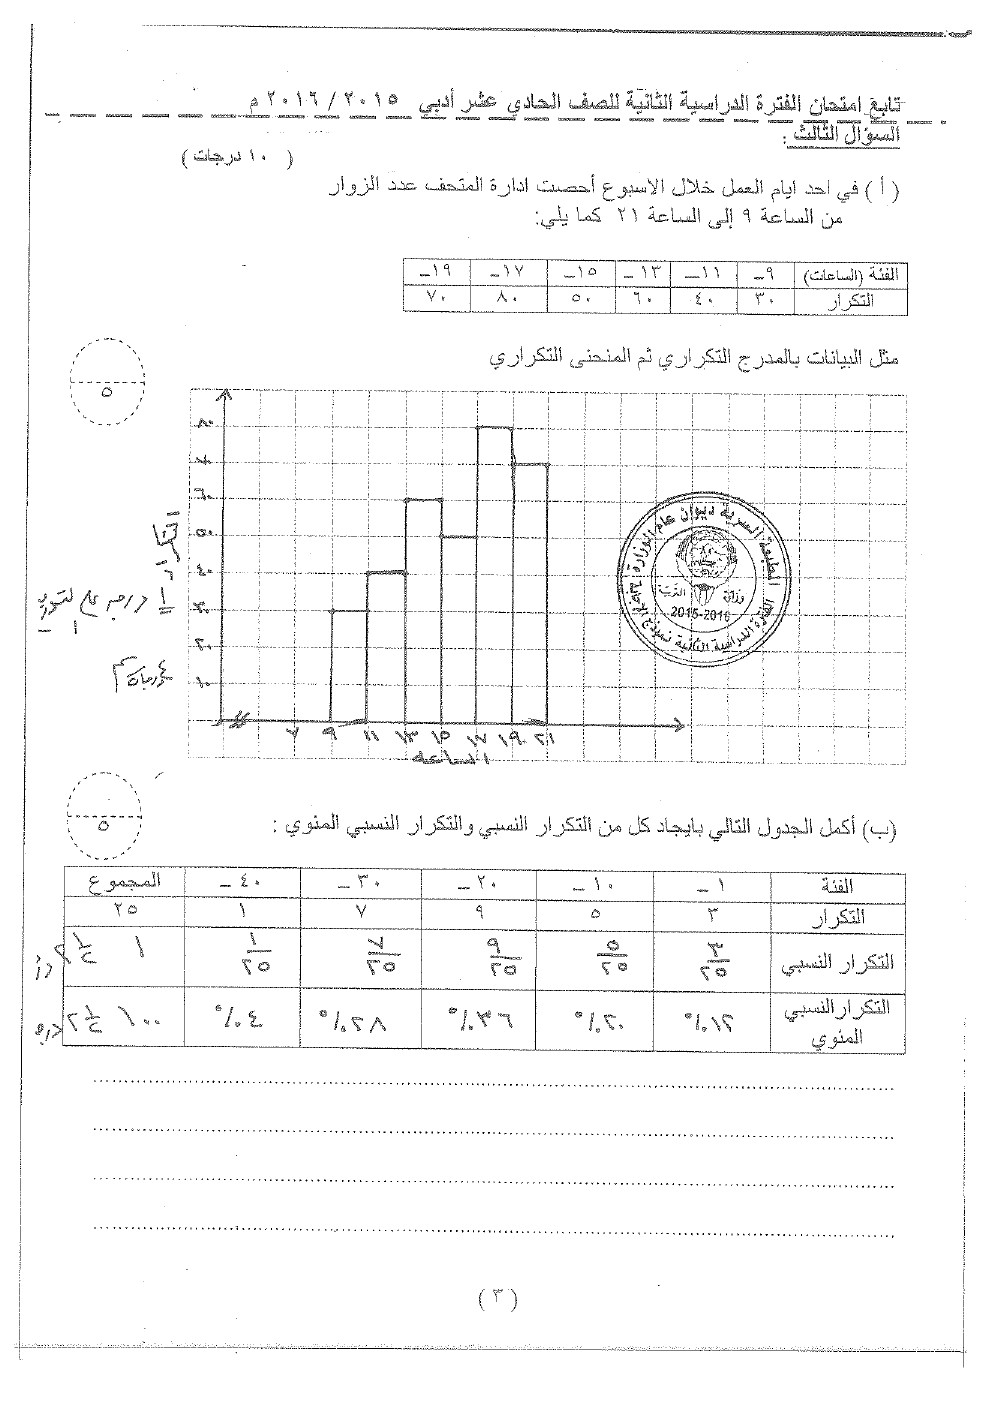 تابع امتحان الفترة الدراسية الثانية للصف الحادي عشر أدبي ٢٠١٥ / ٢٠١٦ م
السؤال الثالث :
( ١٠ درجات )
( أ ) في احد ايام العمل خلال الاسبوع أحصت ادارة المتحف عدد الزوار
من الساعة ٩ إلى الساعة ٢١ كما يلي:
الفئة (الساعات) ٩ـ ١١ـ ١٣ـ ١٥ـ ١٧ـ ١٩ـ
التكرار ٣٠ ٤٠ ٦٠ ٥٠ ٨٠ ٧٠
مثل البيانات بالمدرج التكراري ثم المنحنى التكراري
٥
٨٠
٧٠
٦٠
٥٠
٤٠
٣٠
٢٠
١٠
التكرار
٧ ٩ ١١ ١٣ ١٥ ١٧ ١٩ ٢١
الساعه
المطبعة السرية ديوان عام الوزارة
وزارة التربية
2015-2016
الفترة الدراسية الثانية نموذج الإجابة
٥
(ب) أكمل الجدول التالي بايجاد كل من التكرار النسبي والتكرار النسبي المئوي :
الفئة ١ ـ ١٠ ـ ٢٠ ـ ٣٠ ـ ٤٠ ـ المجموع
التكرار ٣ ٥ ٩ ٧ ١ ٢٥
التكرار النسبي ٣/٢٥ ٥/٢٥ ٩/٢٥ ٧/٢٥ ١/٢٥ ١ ٢ ١/٢
التكرار النسبي المئوي ١٢% ٢٠% ٣٦% ٢٨% ٤% ١٠٠ ٢ ١/٢
( ٣ )